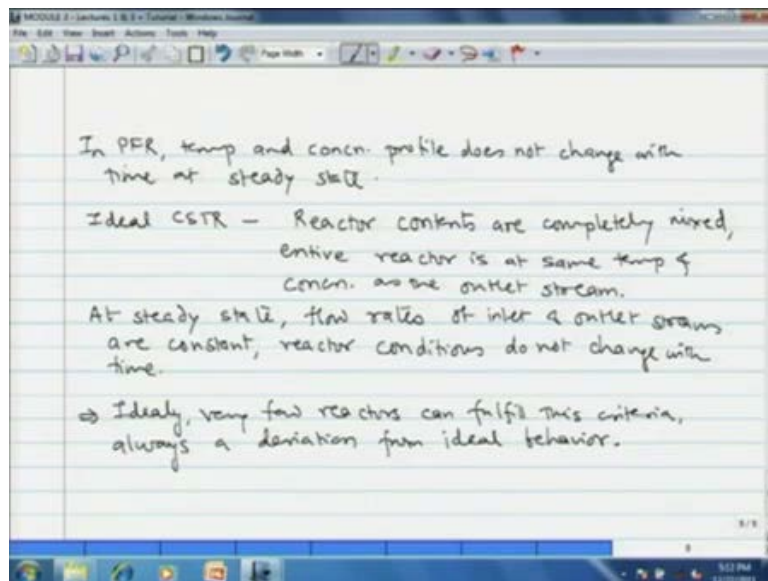 MODULE 3 - Lectures 1 & 3 + Tutorial - Windows Journal
File Edit View Insert Actions Tools Help
Page Width
In PFR, temp and concn. profile does not change with
time at steady state.
Ideal CSTR - Reactor contents are completely mixed,
entire reactor is at same temp &
concn. as the outlet stream.
At steady state, flow rates of inlet & outlet streams
are constant, reactor conditions do not change with
time.
⇒ Idealy, very few reactors can fulfil this criteria,
always a deviation from ideal behavior.
5/5
5:12 PM